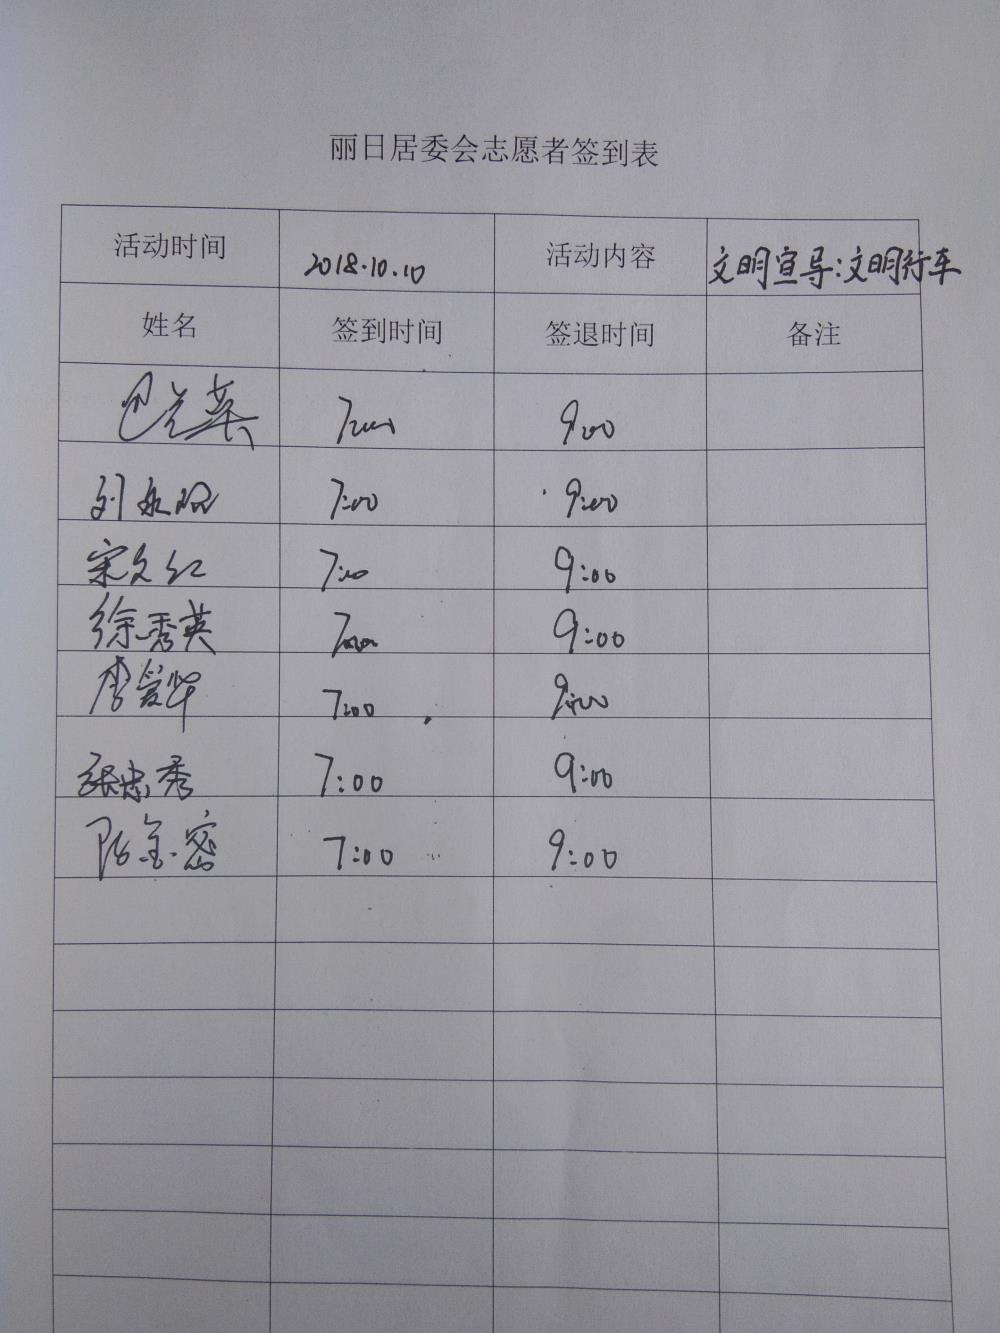 丽日居委会志愿者签到表
活动时间 2018.10.10 活动内容 文明宣导:文明行车
姓名 签到时间 签退时间 备注
英 7:00 9:00
刘永 7:00 9:00
宋文红 7:00 9:00
徐秀英 7:00 9:00
李爱华 7:00 9:00
张忠秀 7:00 9:00
陆金密 7:00 9:00